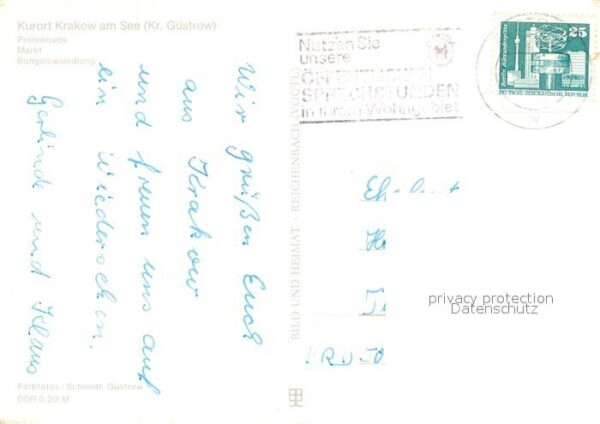 Kurort Krakow am See (Kr. Güstrow)
Promenade
Markt
Bungalowsiedlung
Wir grüßen Euch
aus Krakow
und freuen uns auf
ein Wiedersehen.
Gerlinde und Klaus
Farbfotos: Schmidt, Güstrow
DDR 0,20 M
BILD UND HEIMAT · REICHENBACH (VOGTL)
Nutzen Sie
unsere
ÖFFENTLICHEN
SPRECHSTUNDEN
in Ihrem Wohngebiet
25
Berlin, Alexanderplatz
DEUTSCHE DEMOKRATISCHE REPUBLIK
privacy protection
Datenschutz